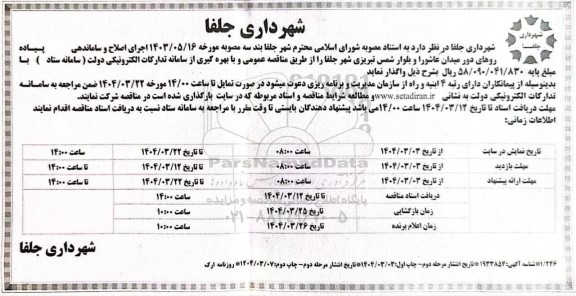 شهرداری جلفا
شهرداری
جلفا
شهرداری جلفا در نظر دارد به استناد مصوبه شورای اسلامی محترم شهر جلفا بند سه مصوبه مورخه ۱۴۰۳/۰۵/۱۶ اجرای اصلاح و ساماندهی پیاده
روهای دور میدان عاشورا و بلوار شمس تبریزی شهر جلفا را از طریق مناقصه عمومی و با بهره گیری از سامانه تدارکات الکترونیکی دولت (سامانه ستاد ) با
مبلغ پایه ۵۸/۰۹۰/۰۴۱/۸۳۰ ریال بشرح ذیل واگذار نماید
بدینوسیله از پیمانکاران دارای رتبه ۴ ابنیه و راه از سازمان مدیریت و برنامه ریزی دعوت میشود در صورت تمایل تا ساعت ۱۴/۰۰ مورخه ۱۴۰۴/۰۳/۲۲ ضمن مراجعه به سامانه
تدارکات الکترونیکی دولت به نشانی www.setadiran.ir و مطالعه شرایط مناقصه و اسناد مربوطه که در سایت بارگذاری شده است در مناقصه شرکت نمایند.
مهلت دریافت اسناد تا تاریخ ۱۴۰۴/۰۳/۱۲ تا ساعت ۱۴/۰۰ می باشد پیشنهاد دهندگان بایستی تا وقت مقرر با مراجعه به سامانه ستاد نسبت به دریافت اسناد مناقصه اقدام نمایند
اطلاعات زمانی:
تاریخ نمایش در سایت از تاریخ ۱۴۰۴/۰۳/۰۳ ساعت ۰۸:۰۰ تا تاریخ ۱۴۰۴/۰۳/۲۲ تا ساعت ۱۴:۰۰
مهلت بازدید از تاریخ ۱۴۰۴/۰۳/۰۳ ساعت ۰۸:۰۰ تا تاریخ ۱۴۰۴/۰۳/۲۲ تا ساعت ۱۴:۰۰
مهلت ارائه پیشنهاد از تاریخ ۱۴۰۴/۰۳/۰۳ ساعت ۰۸:۰۰ تا تاریخ ۱۴۰۴/۰۳/۲۲ تا ساعت ۱۴:۰۰
دریافت اسناد مناقصه تا تاریخ ۱۴۰۴/۰۳/۱۲ ساعت ۱۴:۰۰
زمان بازگشایی تاریخ ۱۴۰۴/۰۳/۲۵ ساعت ۱۰:۰۰
زمان اعلام برنده تاریخ ۱۴۰۴/۰۳/۲۶ ساعت ۱۰:۰۰
ParsNamadData
۰۲۱-۸۸۳۴۹۶۷۰-۵
شهرداری جلفا
۱/۲۴۶ *شناسه آگهی: ۱۹۳۳۸۵۲* تاریخ انتشار مرحله دوم- چاپ اول: ۱۴۰۴/۰۳/۰۳* تاریخ انتشار مرحله دوم- چاپ دوم: ۱۴۰۴/۰۳/۰۷* روزنامه ارک